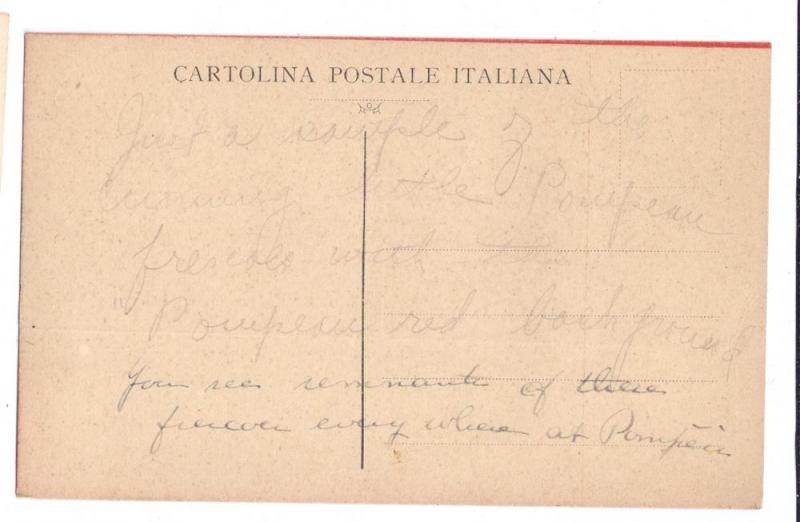 CARTOLINA POSTALE ITALIANA
Just a sample of the
cunning little Pompeian
frescoes with the
"Pompeian red background"
You see remnants of these
frescoes every where at Pompeii